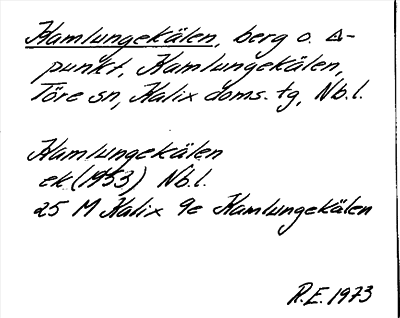 Kamlungekälen, berg o. Δ-
punkt, Kamlungekälen,
Töre sn, Kalix doms. tg, Nb.l.
Kamlungekälen
ek (1953) Nb.l.
25 M Kalix 9e Kamlungekälen
R.E. 1973